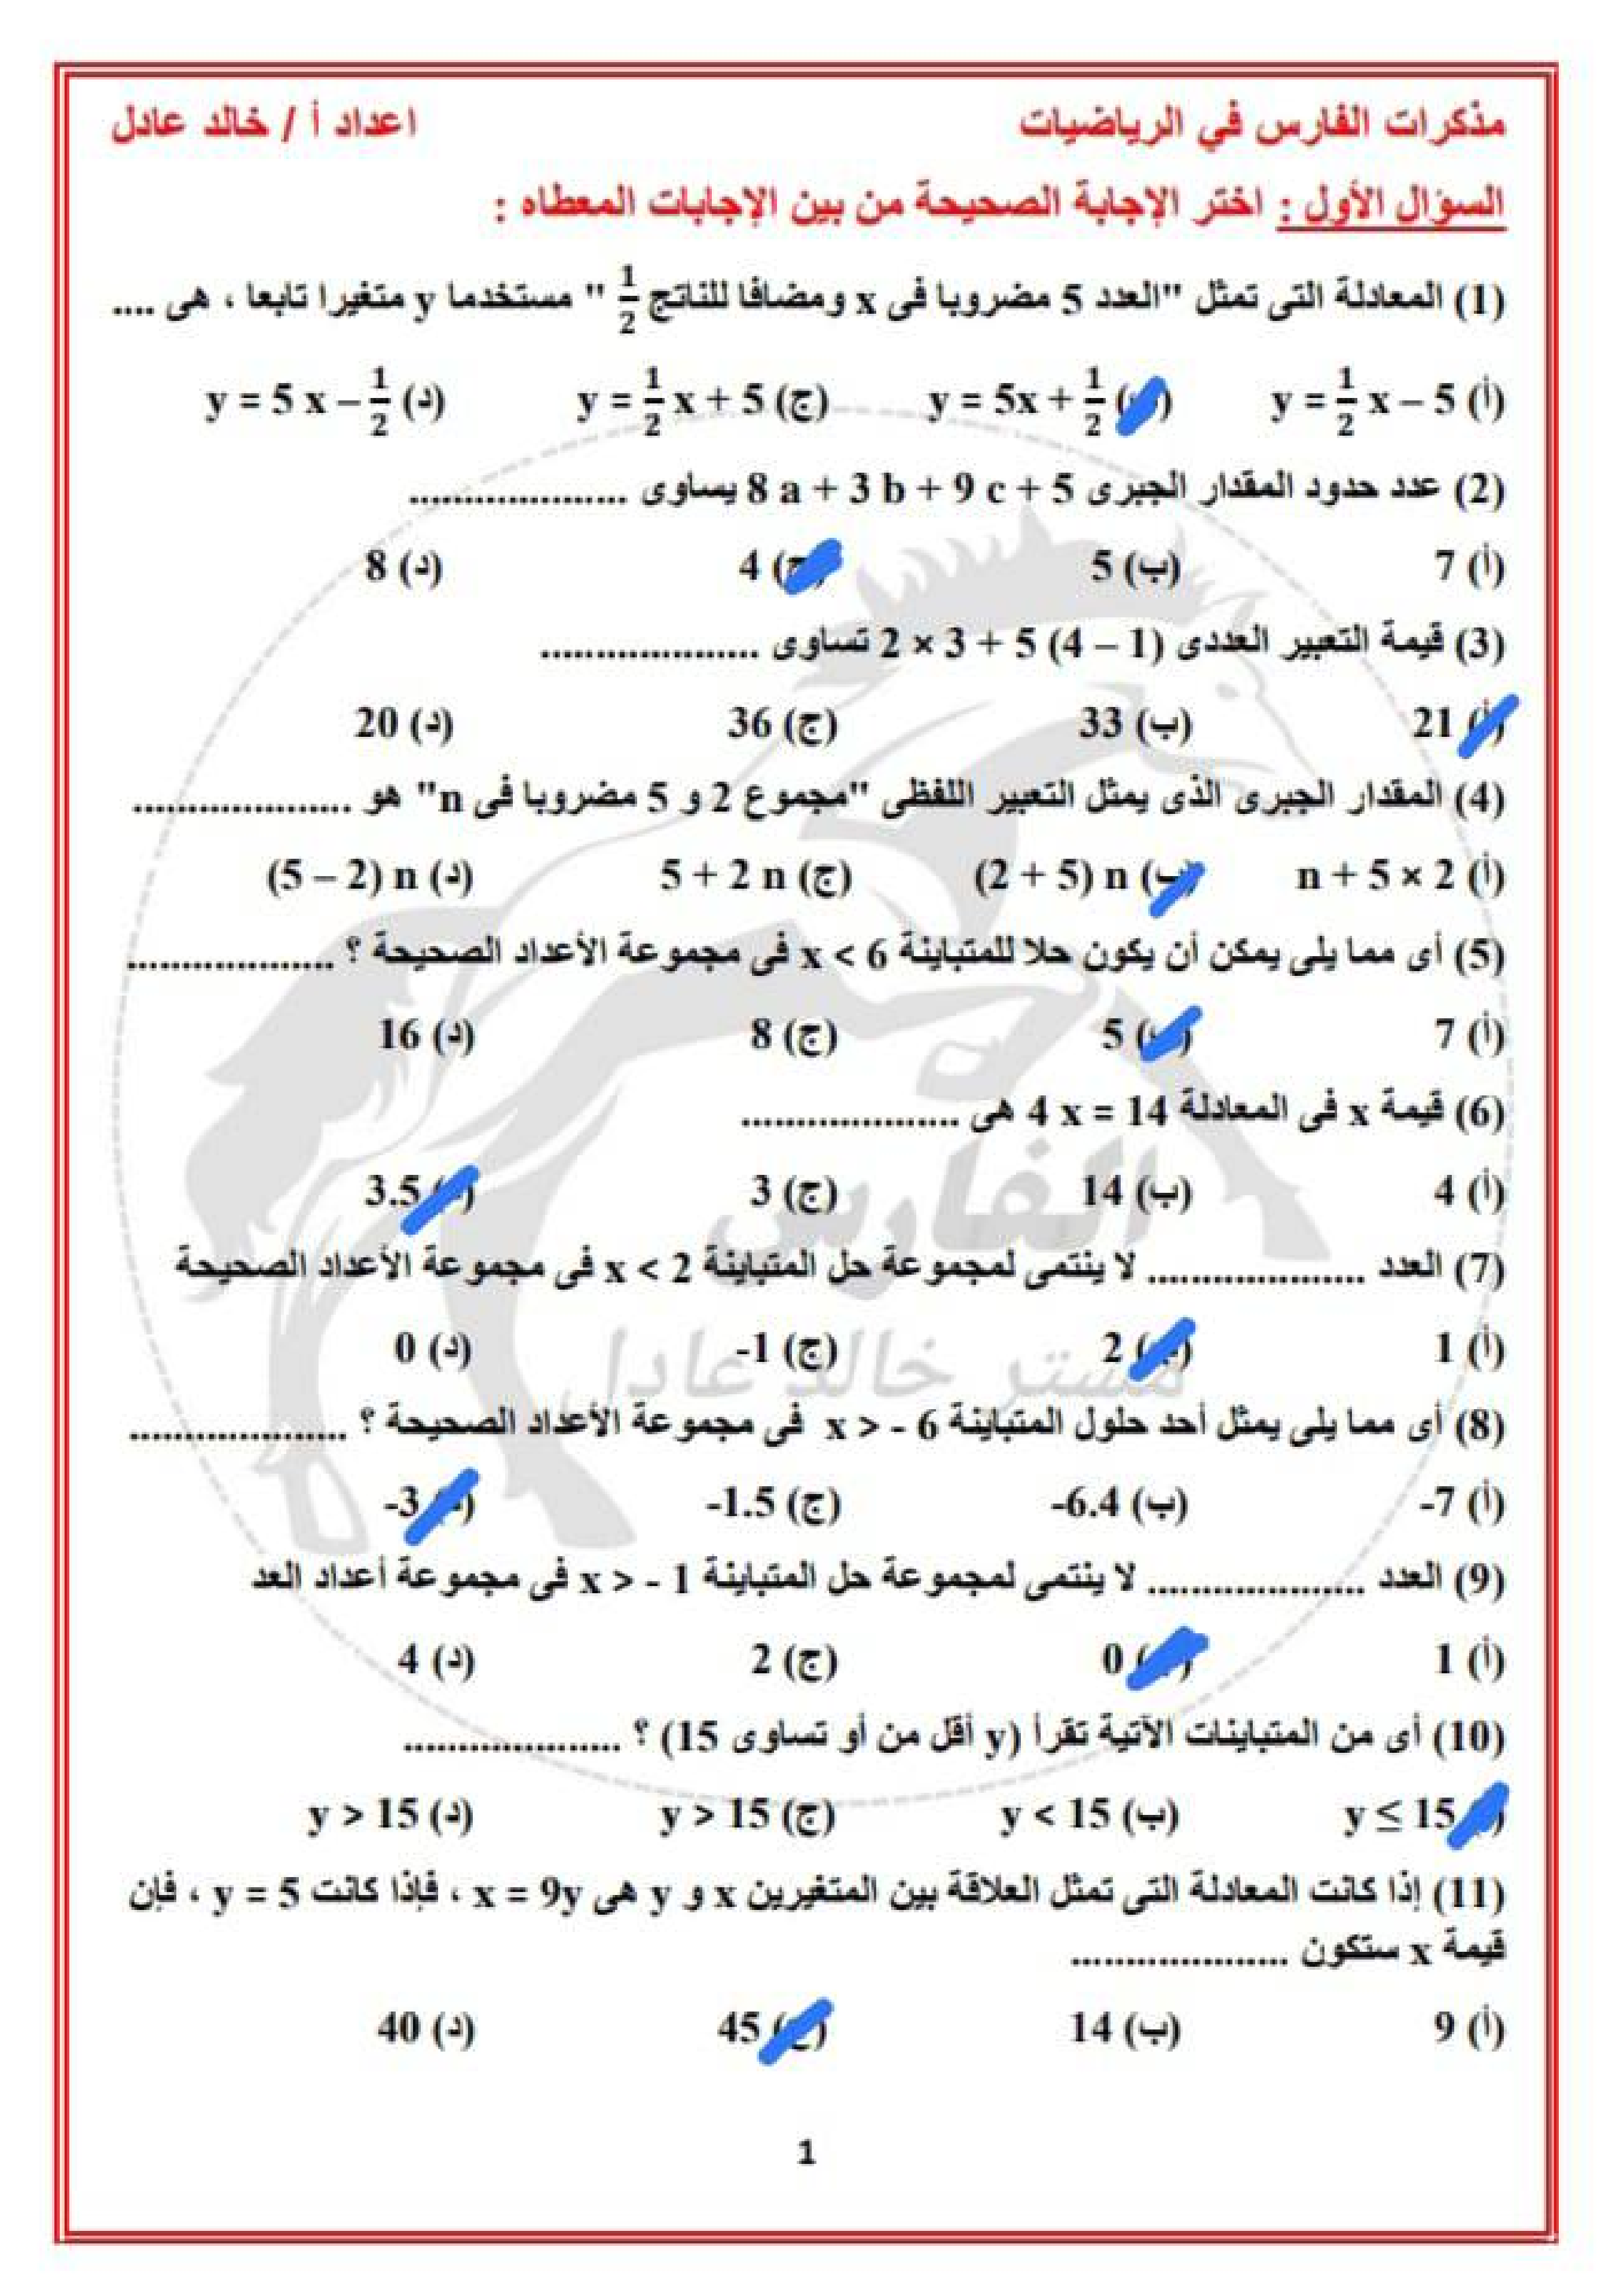 مذكرات الفارس في الرياضيات اعداد أ / خالد عادل
السؤال الأول : اختر الإجابة الصحيحة من بين الإجابات المعطاه :
(1) المعادلة التى تمثل "العدد 5 مضروبا فى x ومضافا للناتج 1/2 " مستخدما y متغيرا تابعا ، هى ....
(أ) y = 1/2 x – 5 (ب) y = 5x + 1/2 (ج) y = 1/2 x + 5 (د) y = 5 x – 1/2
(2) عدد حدود المقدار الجبرى 8 a + 3 b + 9 c + 5 يساوى ....................
(أ) 7 (ب) 5 (ج) 4 (د) 8
(3) قيمة التعبير العددى 2 × 3 + 5 (4 – 1) تساوى ....................
(أ) 21 (ب) 33 (ج) 36 (د) 20
(4) المقدار الجبرى الذى يمثل التعبير اللفظى "مجموع 2 و 5 مضروبا فى n" هو ....................
(أ) n + 5 × 2 (ب) (2 + 5) n (ج) 5 + 2 n (د) (5 – 2) n
(5) أى مما يلى يمكن أن يكون حلا للمتباينة x < 6 فى مجموعة الأعداد الصحيحة ؟ ...................
(أ) 7 (ب) 5 (ج) 8 (د) 16
(6) قيمة x فى المعادلة 4 x = 14 هى ....................
(أ) 4 (ب) 14 (ج) 3 (د) 3.5
(7) العدد .................... لا ينتمى لمجموعة حل المتباينة x < 2 فى مجموعة الأعداد الصحيحة
(أ) 1 (ب) 2 (ج) -1 (د) 0
(8) أى مما يلى يمثل أحد حلول المتباينة x > - 6 فى مجموعة الأعداد الصحيحة ؟ ....................
(أ) -7 (ب) -6.4 (ج) -1.5 (د) -3
(9) العدد .................... لا ينتمى لمجموعة حل المتباينة x > - 1 فى مجموعة أعداد العد
(أ) 1 (ب) 0 (ج) 2 (د) 4
(10) أى من المتباينات الآتية تقرأ (y أقل من أو تساوى 15) ؟ ....................
(أ) y ≤ 15 (ب) y < 15 (ج) y > 15 (د) y > 15
(11) إذا كانت المعادلة التى تمثل العلاقة بين المتغيرين x و y هى x = 9y ، فإذا كانت y = 5 ، فإن
قيمة x ستكون ....................
(أ) 9 (ب) 14 (ج) 45 (د) 40
الفارس
مستر خالد عادل
1